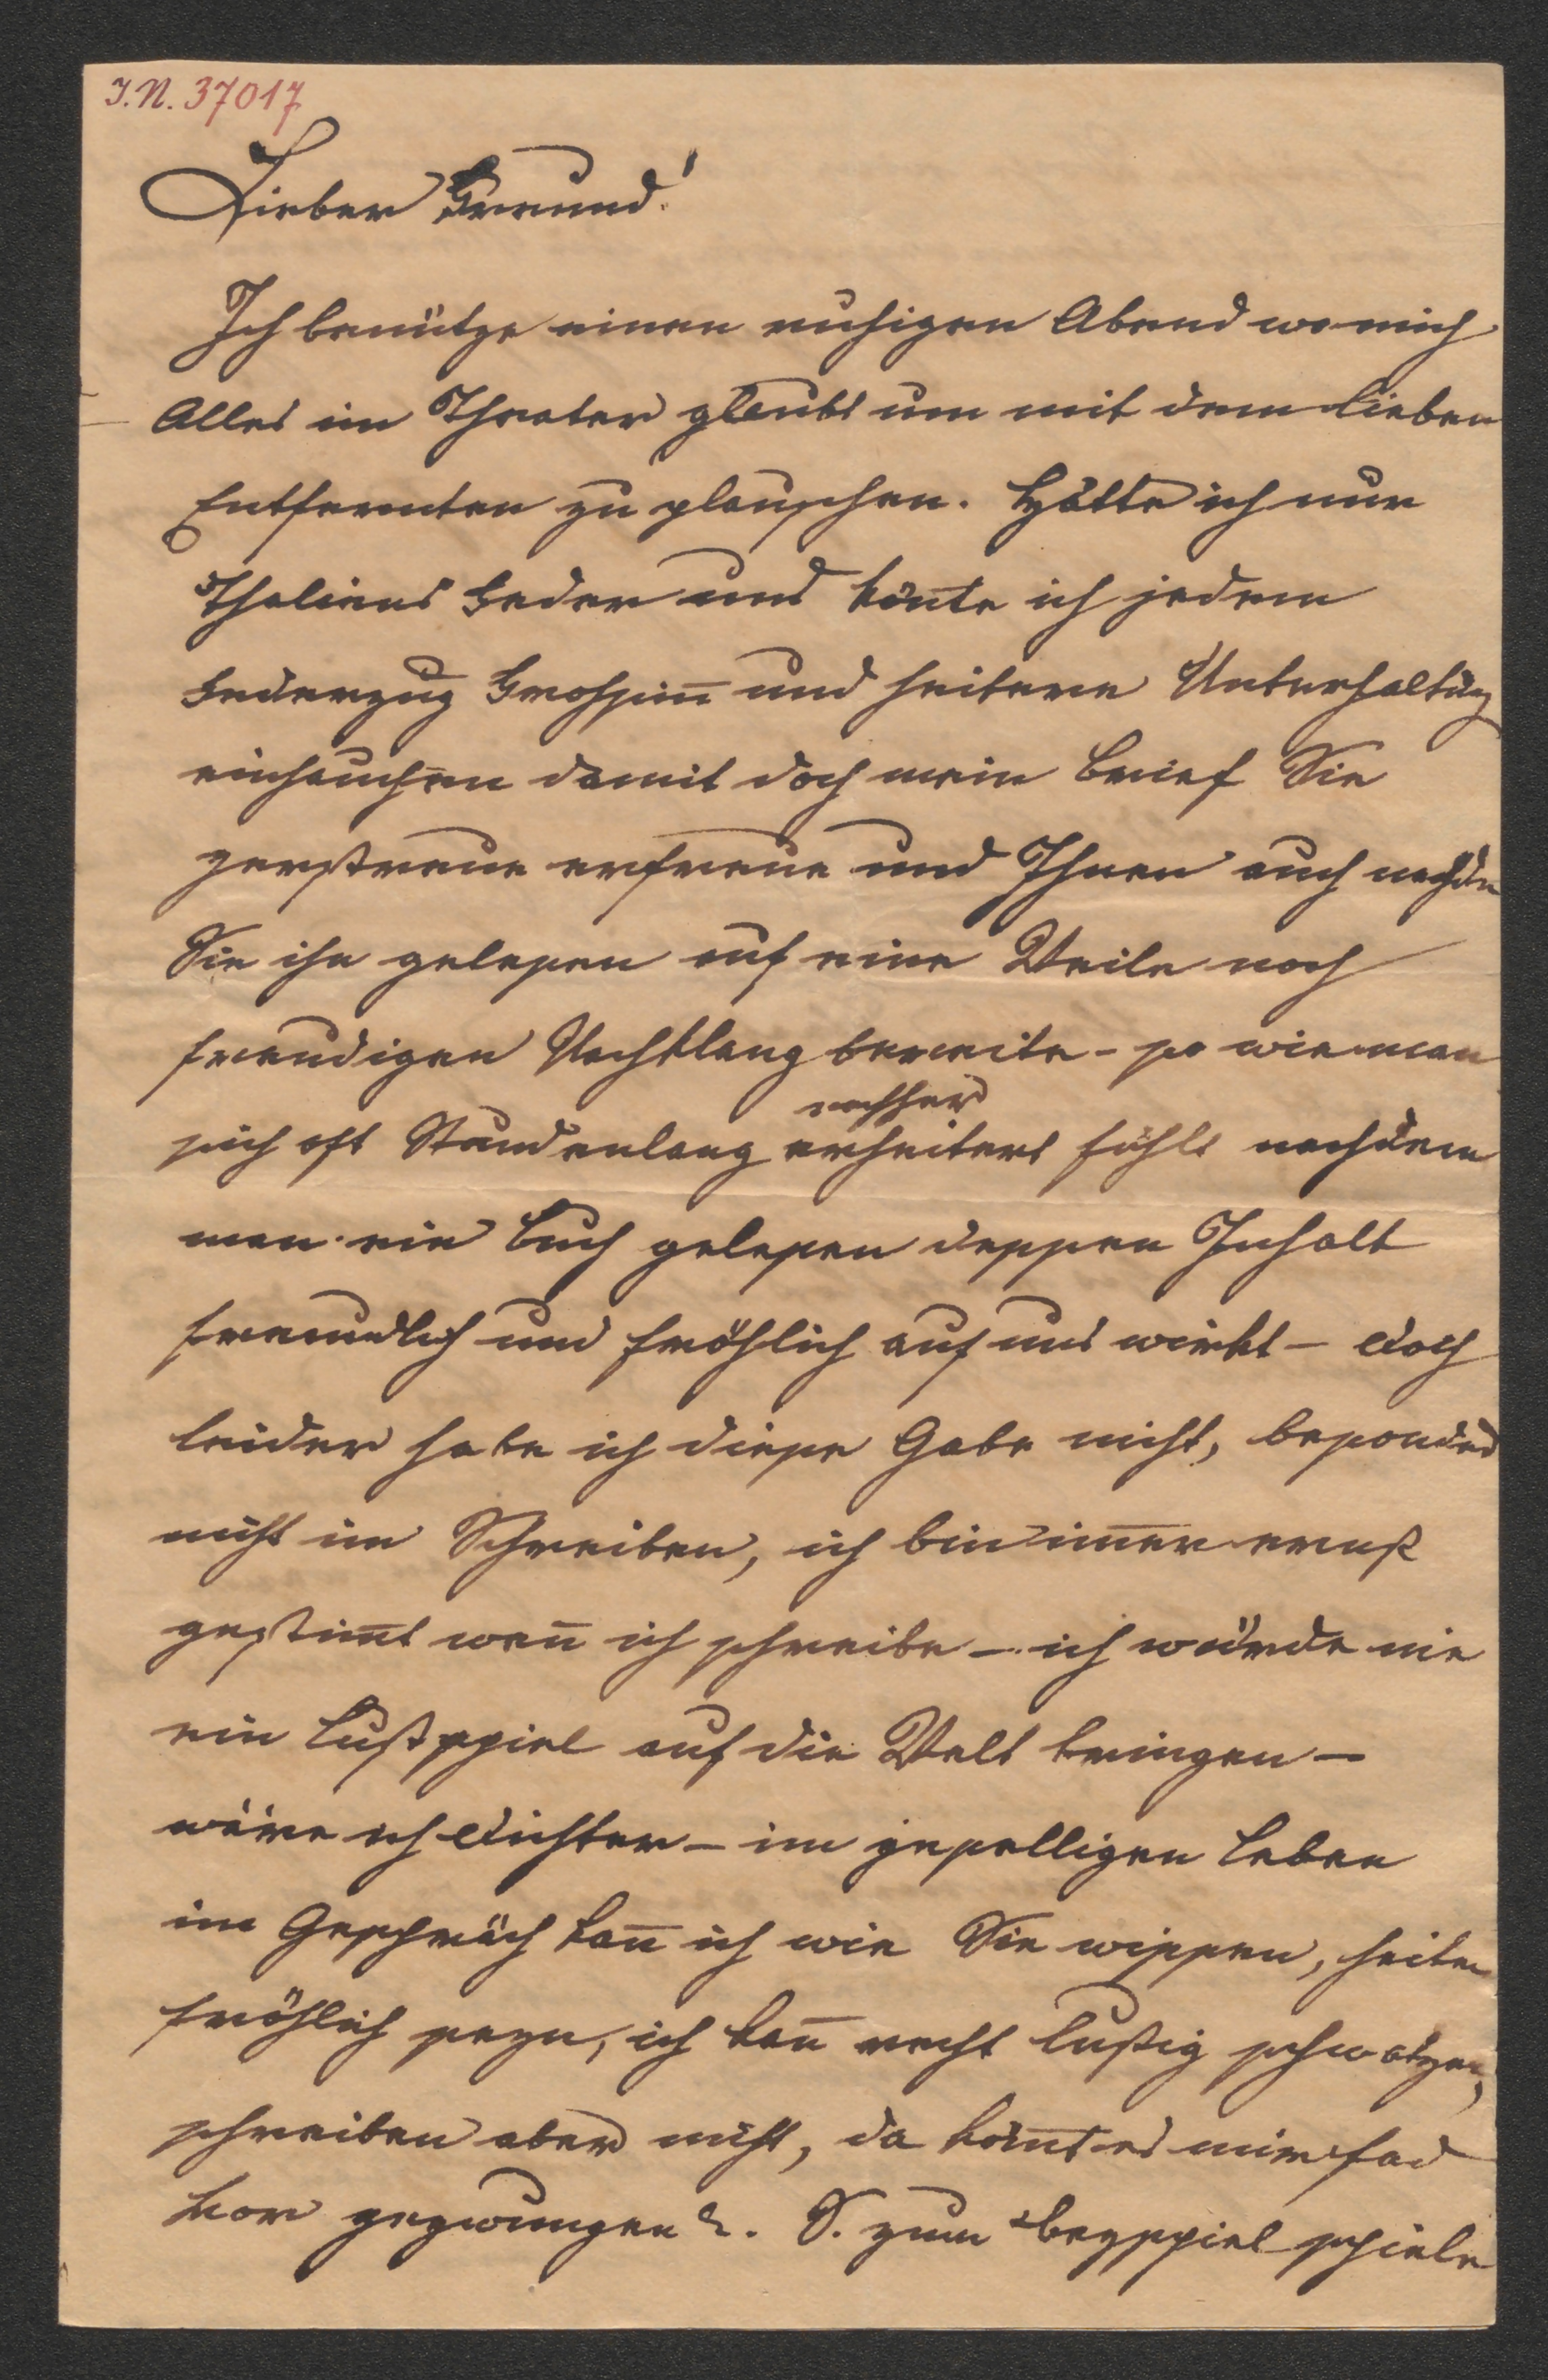 I.N. 37017
Lieber Freund!
Ich benütze einen ruhigen Abend wo mich
Alles im Theater glaubt um mit dem lieben
Entfernten zu plauschen. Hätte ich nur
Thaliens Feder und kön̄te ich jedem
Federzug Frohsin̄ und heitere Unterhaltūg
einhauchen damit doch mein Brief Sie
zerstreue erfreue und Ihnen auch nachdem
Sie ihn gelesen auf eine Weile noch
freudigen Nachklang bereite - so wie man
nachher
sich oft Stundenlang erheitert fühlt nachdem
man ein Buch gelesen dessen Inhalt
freundlich und fröhlich auf uns wirkt - doch
leider habe ich diese Gabe nicht, besonders
nicht im Schreiben, ich bin im̄er ernst
gestim̄t wen̄ ich schreibe - ich würde nie
ein Lustspiel auf die Welt bringen -
wäre ich Dichter - im geselligen Leben
im Gespräch kan̄ ich wie Sie wissen, heiter
fröhlich seyn, ich kan̄ recht lustig schwatzen,
schreiben aber nicht, daköm̄t es mir fad
vor gezwungen &. S. zum Beyspiel schiele